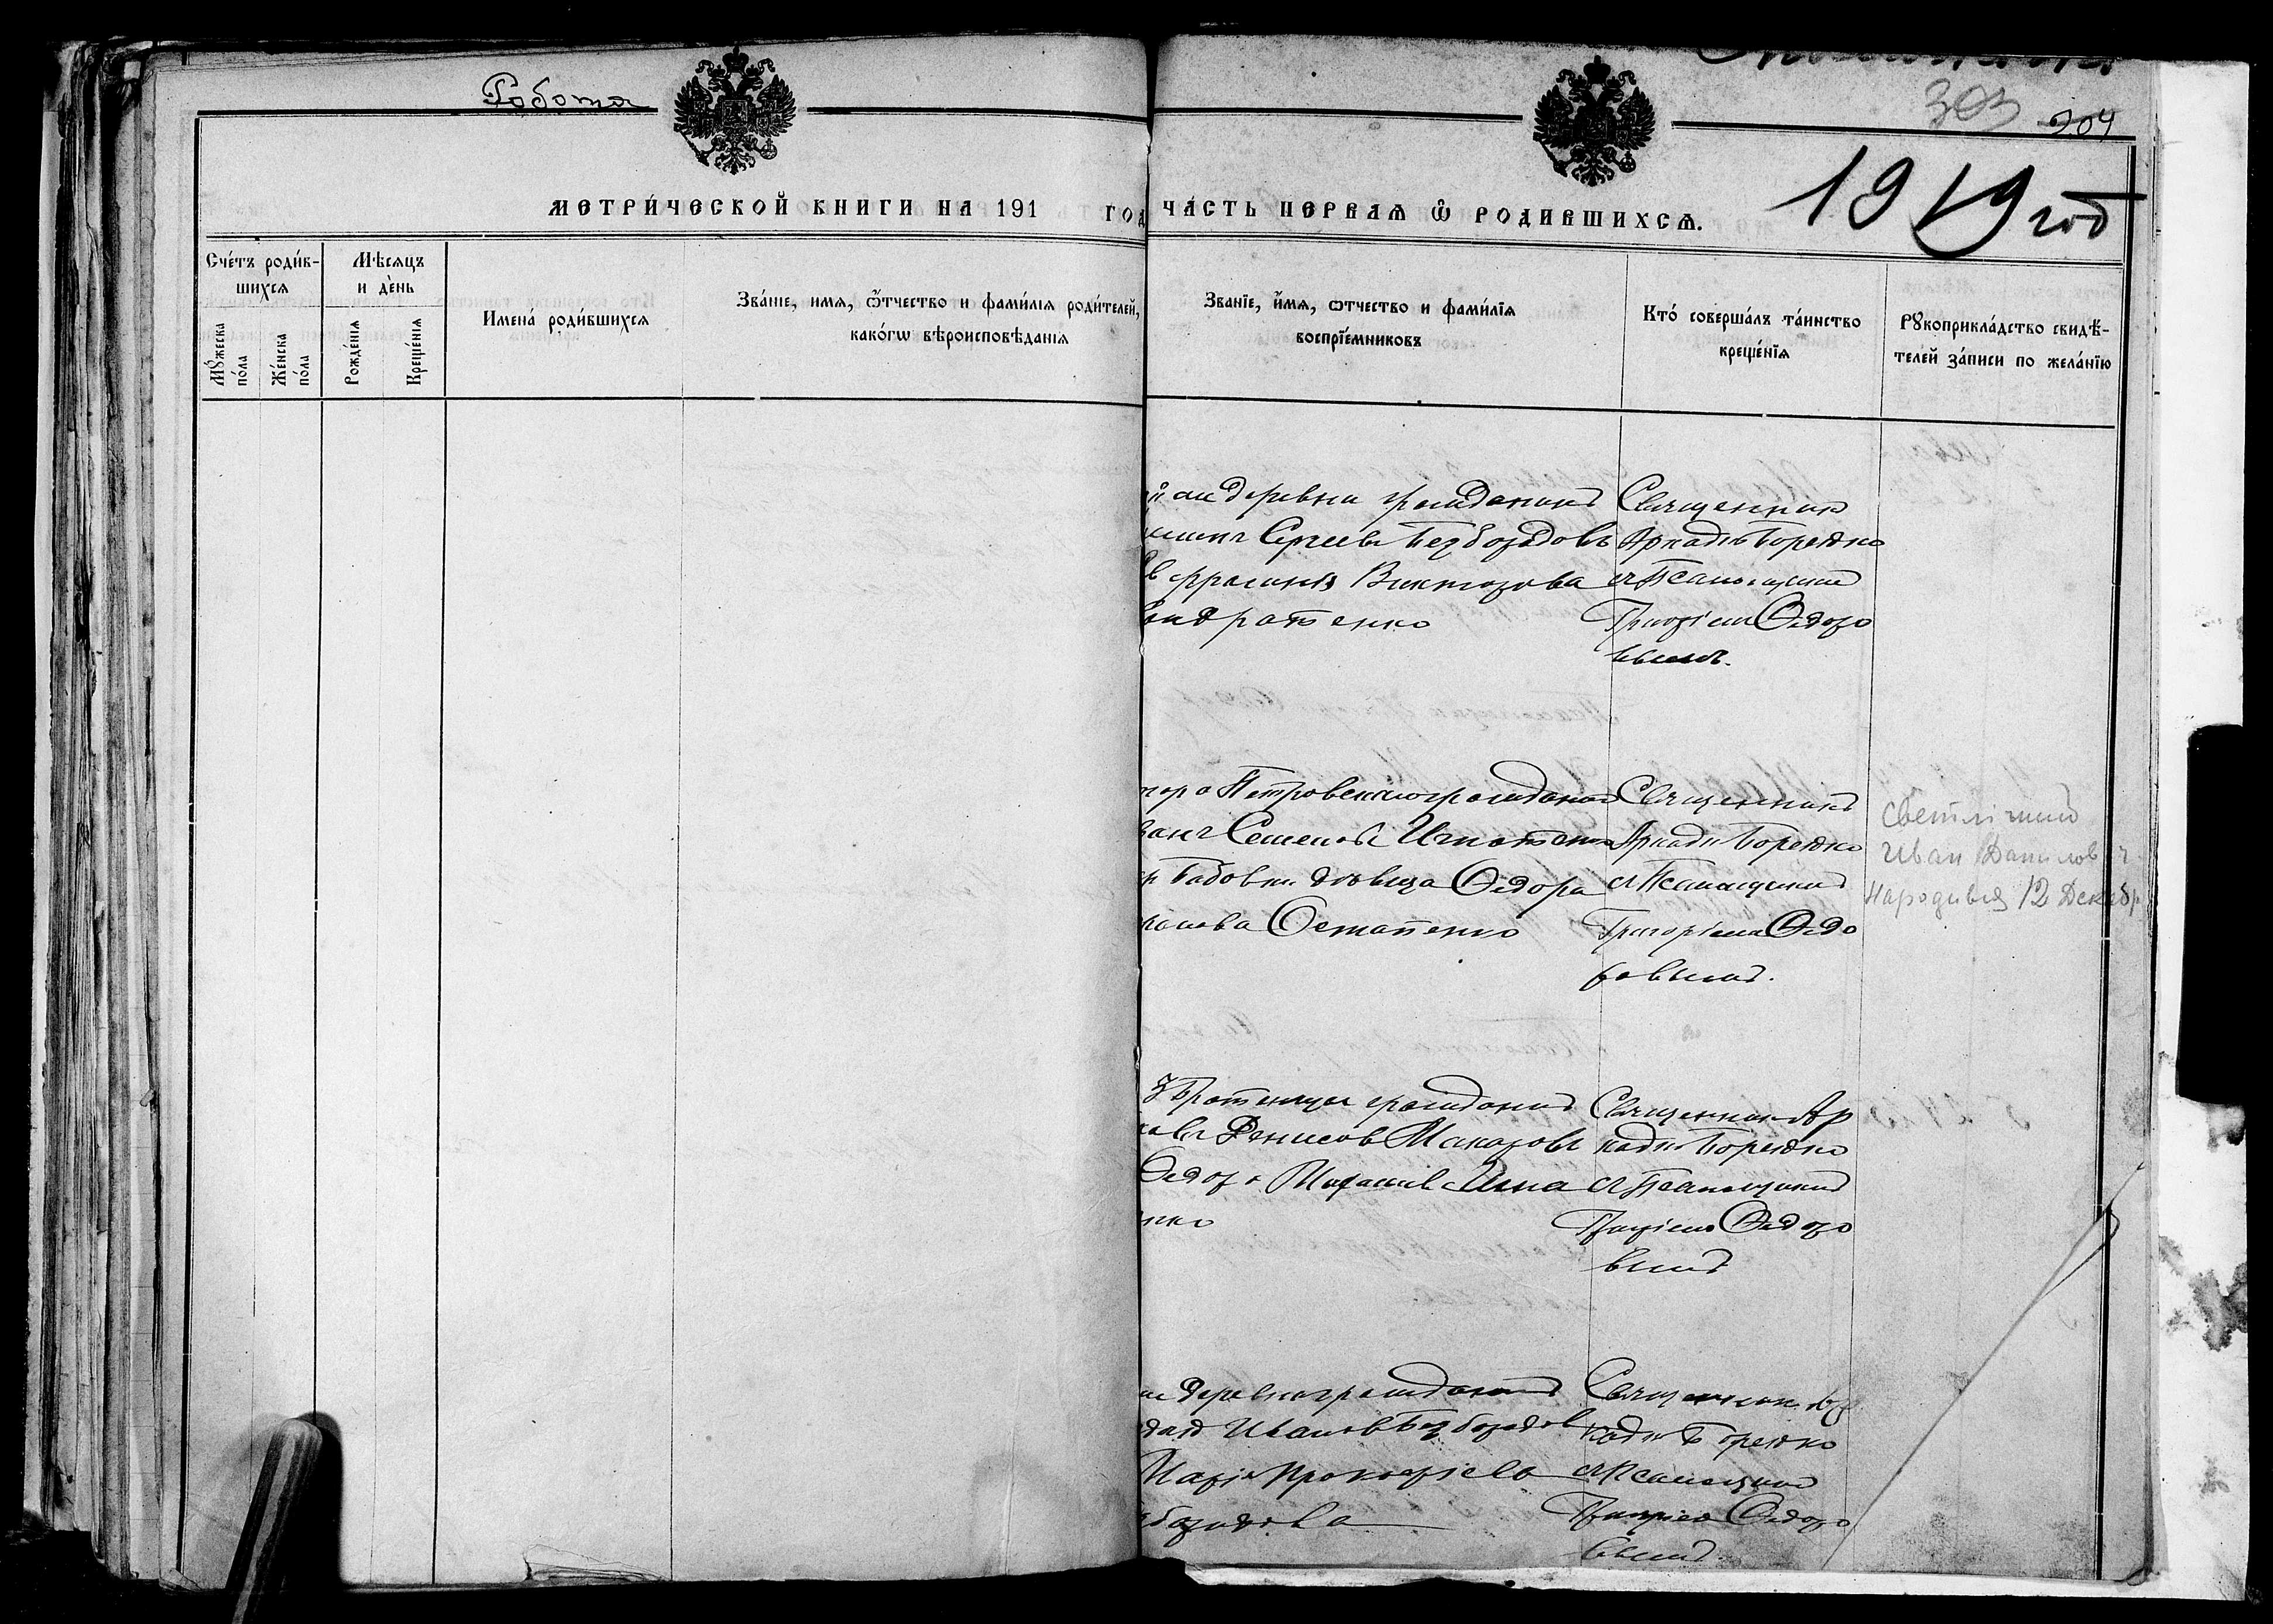 Робота
303 204
1919 год
МЕТРИ́ЧЕСКОЙ КНИГИ НА 191 ГОД
ЧА́СТЬ ПЕРВАЯ Ѿ РОДИВШИХСЯ.
Сче́тъ роди́в-
шихся
Мꙋ́жеска по́ла
Же́нска по́ла
Мѣсяцъ
и де́нь
Рожде́нїя
Креще́нїя
Имена́ роди́вшихся
Зва́нїе, имя, ѻ́тчество и фами́лїя роди́телей,
како́гѡ вѣроисповѣданїя
Званїе, и́мя, ѻтчество и фами́лїя
воспрїе́мниковъ
Кто́ соверша́лъ та́инство
креще́нїя
Рꙋкоприкла́дство свидѣ́-
телей за́писи по жела́нїю
деревни гражданинъ
Сергеевъ Безбородовъ
Викторова
ндратенко
Священникъ
Аркадій Борейко
съ Псаломщикомъ
Григоріемъ Ѳедоро
вымъ.
Петровскаго гражданинъ
Семеновъ Игнатенко
дѣвица Ѳедора
Остапенко
Священникъ
Аркадій Борейко
съ Псаломщикомъ
Григоріемъ Ѳедо
ровымъ.
Светлічний
Иван Данилович
народився 12 Декабр
гражданинъ
Денисовъ Макаровъ
Ѳедора
нко
Священникъ Ар
кадій Борейко
съ Псаломщикомъ
Григоріемъ Ѳедоро
вымъ
деревни гражданинъ
Ивановъ Безбородов
Марія Прокофіева
бородова
Священникъ Ар
кадій Борейко
съ Псаломщикомъ
Григоріемъ Ѳедоро
вымъ.